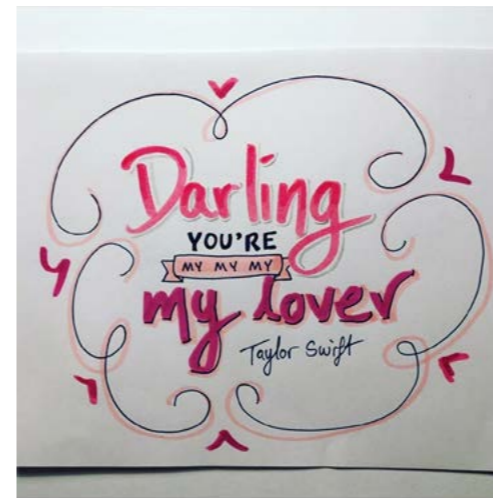 Darling
YOU'RE
MY MY MY
my lover
Taylor Swift